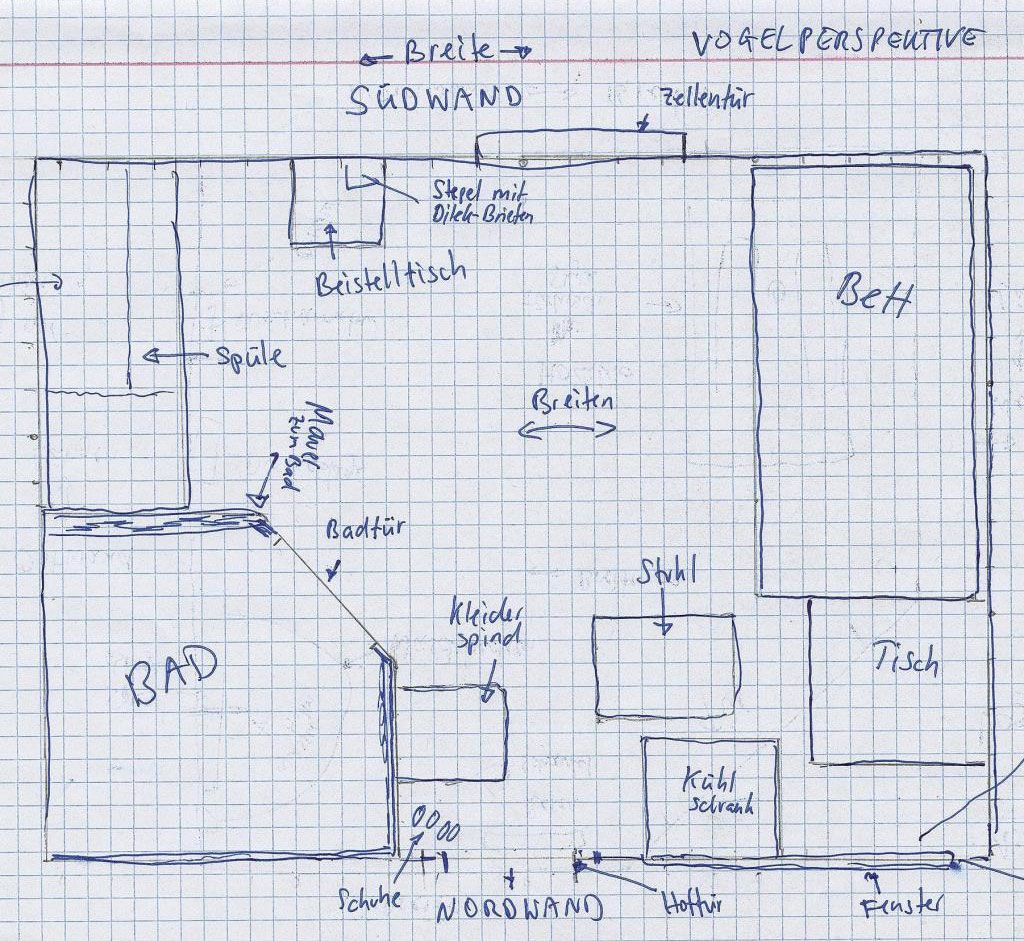 VOGELPERSPEKTIVE
Breite
SÜDWAND
Zellentür
Stepel mit
Dilek-Briefen
Beistelltisch
Bett
Spüle
Breiten
Mauer
zum Bad
Badtür
Stuhl
Kleider
spind
Tisch
BAD
Kühl
schrank
Schuhe
NORDWAND
Hoftür
Fenster